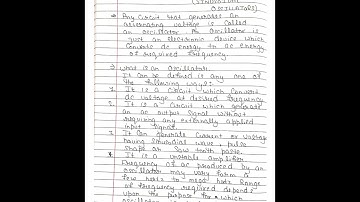 (SINUSOIDAL
OSCILLATORS)
Any Circuit that generates an
alternating voltage is called
an oscillator. An Oscillator is
just an electronic device which
Converts dc energy to ac energy
of required frequency
What is an Oscillator
It can be defined in any one of
the following ways:
1. It is a Circuit which Converts
dc voltage at desired frequency
2. It is a Circuit which generate
an ac output signal without
requiring any externally applied
input signal
3. It can generate Current or voltage
having Sinusoidal wave, pulse
shape or Saw tooth
4. It is a unstable amplifier.
Frequency of ac produced by an
oscillator may vary form a
few hertz to
of frequency required depends
upon the purpose for which